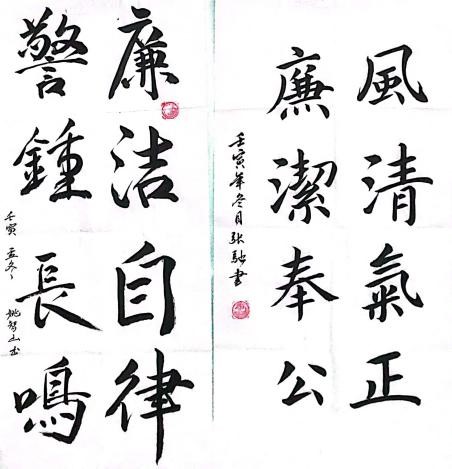 風清氣正
廉潔奉公
壬寅年冬月張融書
廉洁自律
警鍾長鳴
壬寅孟冬
姚智山书